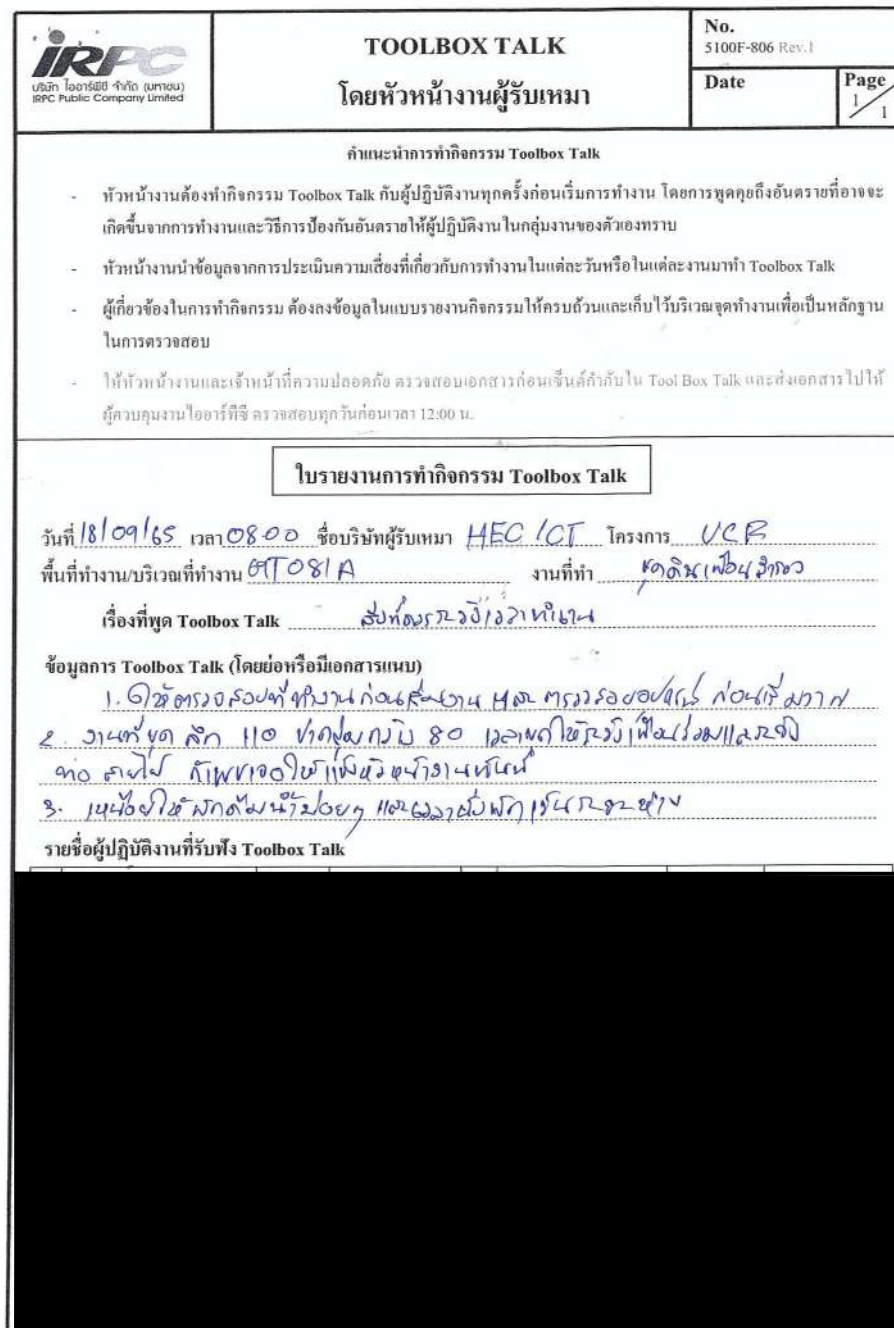 IRPC
บริษัท ไออาร์พีซี จำกัด (มหาชน)
IRPC Public Company Limited
TOOLBOX TALK
โดยหัวหน้างานผู้รับเหมา
No.
5100F-806 Rev.1
Date
Page
1/1
คำแนะนำการทำกิจกรรม Toolbox Talk
- หัวหน้างานต้องทำกิจกรรม Toolbox Talk กับผู้ปฏิบัติงานทุกครั้งก่อนเริ่มการทำงาน โดยการพูดคุยถึงอันตรายที่อาจจะ
เกิดขึ้นจากการทำงานและวิธีการป้องกันอันตรายให้ผู้ปฏิบัติงานในกลุ่มงานของตัวเองทราบ
- หัวหน้างานนำข้อมูลจากการประเมินความเสี่ยงที่เกี่ยวกับการทำงานในแต่ละวันหรือในแต่ละงานมาทำ Toolbox Talk
- ผู้เกี่ยวข้องในการทำกิจกรรม ต้องลงข้อมูลในแบบรายงานกิจกรรมให้ครบถ้วนและเก็บไว้บริเวณจุดทำงานเพื่อเป็นหลักฐาน
ในการตรวจสอบ
- ให้หัวหน้างานและเจ้าหน้าที่ความปลอดภัย ตรวจสอบเอกสารก่อนเซ็นต์กำกับใน Tool Box Talk และส่งเอกสารไปให้
ผู้ควบคุมงานไออาร์พีซี ตรวจสอบทุกวันก่อนเวลา 12:00 น.
ใบรายงานการทำกิจกรรม Toolbox Talk
วันที่ 18/09/65 เวลา 0800 ชื่อบริษัทผู้รับเหมา HEC/CT โครงการ UCF
พื้นที่ทำงาน/บริเวณที่ทำงาน T081A งานที่ทำ ขุดดิน
เรื่องที่พูด Toolbox Talk สิ่งที่ควรระวังเวลาทำงาน
ข้อมูลการ Toolbox Talk (โดยย่อหรือมีเอกสารแนบ)
1. ให้ตรวจสอบที่ทำงานก่อนเริ่มงาน และตรวจสอบอุปกรณ์ ก่อนเริ่มงาน
2. งานที่ขุด ลึก 110 80 เวลาขุดให้ระวังเพื่อนร่วมและระวัง
ท่อ สายไฟ ถ้าพบเจอให้แจ้งหัวหน้างานทันที
3. เหนื่อยให้พักดื่มน้ำบ่อยๆ และเวลานั่งพักเว้นระยะห่าง
รายชื่อผู้ปฏิบัติงานที่รับฟัง Toolbox Talk